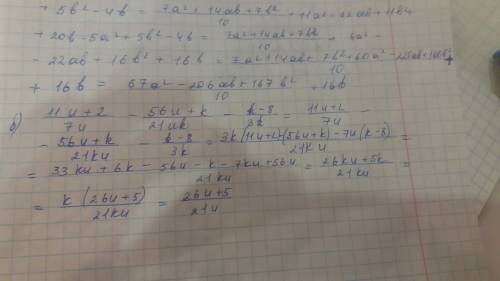 + 5b² - 4b = (7a² + 14ab + 7b²)/10 + 11a² - 22ab + 11b4
+ 20b - 5a² + 5b² - 4b = (7a² + 14ab + 7b²)/10 + 6a² -
- 22ab + 16b² + 16b = (7a² + 14ab + 7b² + 60a² - 220ab + 160b²)/10 +
+ 16b = (67a² - 206ab + 167b²)/10 + 16b
б) (11u + 2)/7u - (56u + k)/21uk - (k - 8)/3k = (11u + 2)/7u -
- (56u + k)/21ku - (k - 8)/3k = (3k(11u + 2) - (56u + k) - 7u(k - 8))/21ku =
= (33ku + 6k - 56u - k - 7ku + 56u)/21ku = (26ku + 5k)/21ku =
= k(26u + 5)/21ku = (26u + 5)/21u